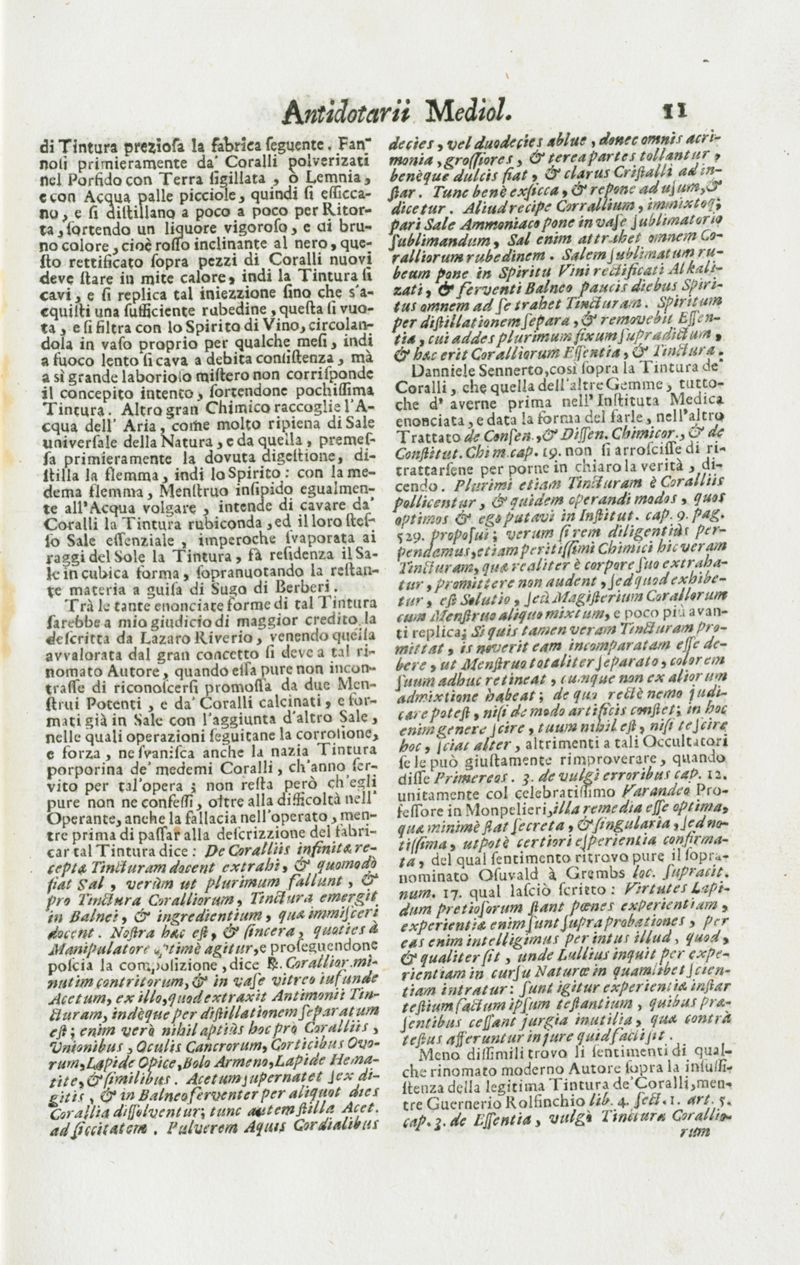 Antidotarii Mediol. 11
di Tintura preziosa la fabrica seguente. Fan-
nosi primieramente da' Coralli polverizati
nel Porfido con Terra sigillata, ò Lemnia,
e con Acqua palle picciole, quindi si essicca-
no, e si distillano a poco a poco per Ritor-
ta, sortendo un liquore vigoroso, e di bru-
no colore, cioè rosso inclinante al nero, que-
sto rettificato sopra pezzi di Coralli nuovi
deve stare in mite calore, indi la Tintura si
cavi, e si replica tal iniezzione sino che s'a-
cquisti una sufficiente rubedine, questa si vuo-
ta, e si filtra con lo Spirito di Vino, circolan-
dola in vaso proprio per qualche mesi, indi
a fuoco lento si cava a debita consistenza, mà
a sì grande laborioso mistero non corrisponde
il concepito intento, sortendone pochissima
Tintura. Altro gran Chimico raccoglie l'A-
cqua dell' Aria, come molto ripiena di Sale
universale della Natura, e da quella, premes-
sa primieramente la dovuta digestione, di-
stilla la flemma, indi lo Spirito: con la me-
dema flemma, Menstruo insipido egualmen-
te all'Acqua volgare, intende di cavare da'
Coralli la Tintura rubiconda, ed il loro stes-
so Sale essenziale, imperoche svaporata ai
raggi del Sole la Tintura, fà residenza il Sa-
le in cubica forma, sopranuotando la restan-
te materia a guisa di Sugo di Berberi.
Trà le tante enonciate forme di tal Tintura
sarebbe a mio giudicio di maggior credito la
descritta da Lazaro Riverio, venendo quella
avvalorata dal gran concetto si deve a tal ri-
nomato Autore, quando essa pure non incon-
trasse di riconoscersi promossa da due Men-
strui Potenti, e da' Coralli calcinati, e for-
mati già in Sale con l'aggiunta d'altro Sale,
nelle quali operazioni seguitane la corrosione,
e forza, ne svanisca anche la nazia Tintura
porporina de' medemi Coralli, ch'anno ser-
vito per tal'opera; non resta però ch'egli
pure non ne confessi, oltre alla difficoltà nell'
Operante, anche la fallacia nell'operato, men-
tre prima di passar alla descrizzione del fabri-
car tal Tintura dice: De Coralliis infinita re-
cepta Tincturam docent extrahi, & quomodò
fiat Sal, verùm ut plurimum fallunt, &
pro Tinctura Coralliorum, Tinctura emergit
in Balnei, & ingredientium, qua immisceri
docent. Nostra hac est, & sincera, quoties à
Manipulatore optimè agitur, e proseguendone
poscia la composizione, dice ℞. Corallior. mi-
nutim contritorum, & in vase vitreo infunde
Acetum, ex illo, quod extraxit Antimonii Tin-
cturam, indèque per distillationem separatum
est; enim verò nihil aptiùs hoc prò Coralliis,
Unionibus, Oculis Cancrorum, Corticibus Ovo-
rum, Lapide Opice, Bolo Armeno, Lapide Hema-
tite, & similibus. Acetum supernatet sex di-
gitis, & in Balneo ferventer per aliquot dies
Corallia dissolventur; tunc autem stilla Acet.
ad siccitatem. Pulverem Aquis Cordialibus
decies, vel duodecies ablue, donec omnis acri-
monia, grossiores, & terea partes tollantur,
benèque dulcis fiat, & clarus Cristalli ad in-
star. Tunc benè exsicca, & repone ad usum, &
dicetur. Aliud recipe Corrallium, immixtoq;
pari Sale Ammoniaco pone in vase sublimatorio
sublimandum, Sal enim attrahet omnem Co-
ralliorum rubedinem. Salem sublimatum ru-
beum pone in Spiritu Vini rectificati Alkali-
zati, & ferventi Balneo paucis diebus Spiri-
tus omnem ad se trahet Tincturam. Spiritum
per distillationem separa, & removebit Essen-
tia, cui addes plurimum fixum supradictum,
& hac erit Coralliorum Essentia, & Tinctura.
Danniele Sennerto, così sopra la Tintura de'
Coralli, che quella dell'altre Gemme, tutto-
che d' averne prima nell' Instituta Medica
enonciata, e data la forma del farle, nell'altro
Trattato de Consen., & Dissen. Chimicor., & de
Constitut. Chim. cap. 19. non si arroscisse di ri-
trattarsene per porne in chiaro la verità, di-
cendo. Plurimi etiam Tincturam è Coralliis
pollicentur, & quidem operandi modos, quos
optimos & ego putavi in Institut. cap. 9. pag.
529. proposui; verum si rem diligentiùs per-
pendamus, etiam peritissimi Chimici hic veram
Tincturam, qua realiter è corpore suo extraha-
tur, promittere non audent, sed quod exhibe-
tur, est Solutio, seu Magisterium Corallorum
cum Menstruo aliquo mixtum, e poco più avan-
ti replica; Si quis tamen veram Tincturam pro-
mittat, is noverit eam incomparatam esse de-
bere, ut Menstruo totaliter separato, colorem
suum adhuc retineat, cumque non ex aliorum
admixtione habeat; de quo rectè nemo judi-
care potest, nisi de modo artificis constet; in hoc
enim genere scire, tuum nihil est, nisi te scire
hoc, sciat alter, altrimenti a tali Occultatori
se le può giustamente rimproverare, quando
disse Primereos. 3. de vulgi erroribus cap. 12.
unitamente col celebratissimo Varandeo Pro-
fessore in Monpelieri, illa remedia esse optima,
qua minimè fiat secreta, & singularia, sed no-
tissima, utpotè certiori esperientia confirma-
ta, del qual sentimento ritrovo pure il sopra-
nominato Osuvald à Grembs loc. supracit.
num. 17. qual lasciò scritto: Virtutes Lapi-
dum pretiosorum stant pœnes experientiam,
experientia enim sunt supra probationes, per
eas enim intelligimus per intus illud, quod,
& qualiter sit, unde Lullius inquit per expe-
rientiam in cursu Naturœ in quamlibet scien-
tiam intratur: sunt igitur experientia instar
testium factum ipsum testantium, quibus pra-
sentibus cessant jurgia inutilia, qua contrà
testus afferuntur in jure quid facti sit.
Meno dissimili trovo li sentimenti di qual-
che rinomato moderno Autore sopra la insussi-
stenza della legitima Tintura de'Coralli, men-
tre Guernerio Rolfinchio lib. 4. sect. 1. art. 5.
cap. 3. de Essentia, vulgò Tinctura Corallio-
rum